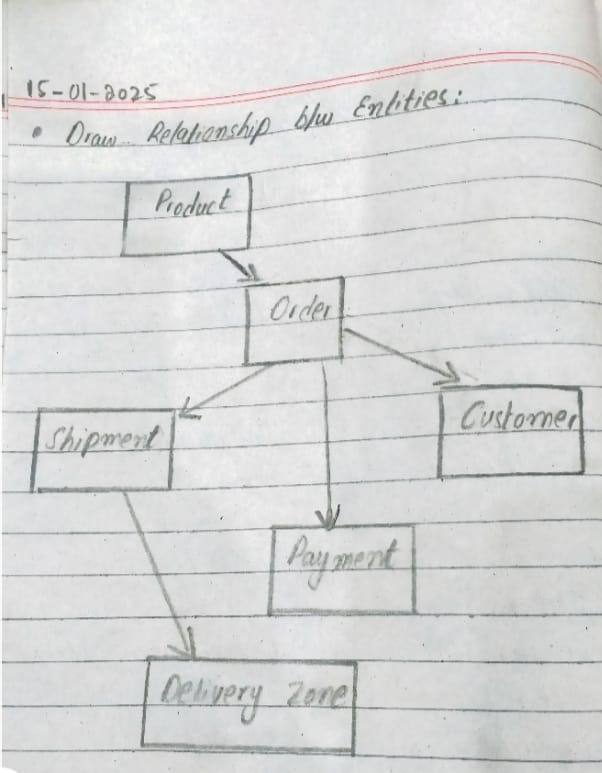 15-01-2025
• Draw Relationship b/w Entities:
Product
Order
Customer
Shipment
Payment
Delivery Zone